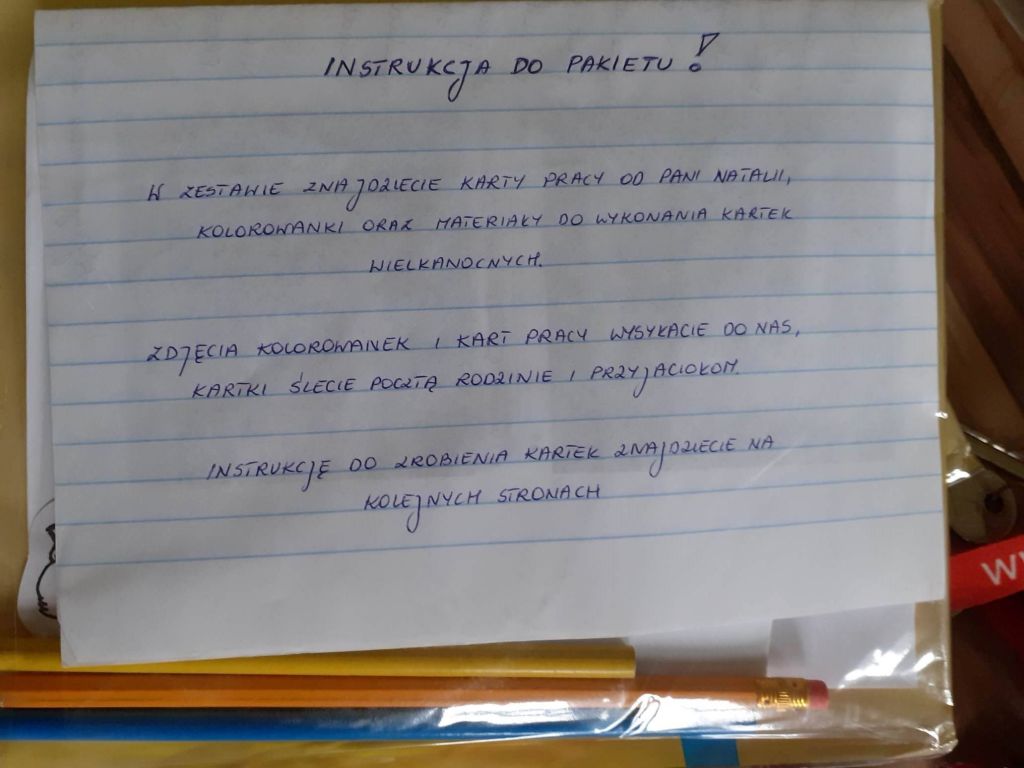 INSTRUKCJA DO PAKIETU!
W ZESTAWIE ZNAJDZIECIE KARTY PRACY OD PANI NATALII,
KOLOROWANKI ORAZ MATERIAŁY DO WYKONANIA KARTEK
WIELKANOCNYCH.
ZDJĘCIA KOLOROWANEK I KART PRACY WYSYŁACIE DO NAS,
KARTKI ŚLECIE POCZTĄ RODZINIE I PRZYJACIOŁOM.
INSTRUKCJĘ DO ZROBIENIA KARTEK ZNAJDZIECIE NA
KOLEJNYCH STRONACH